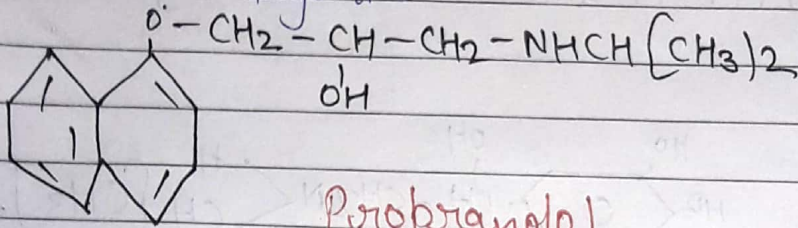 O-CH2-CH-CH2-NHCH(CH3)2
OH
Probranolol